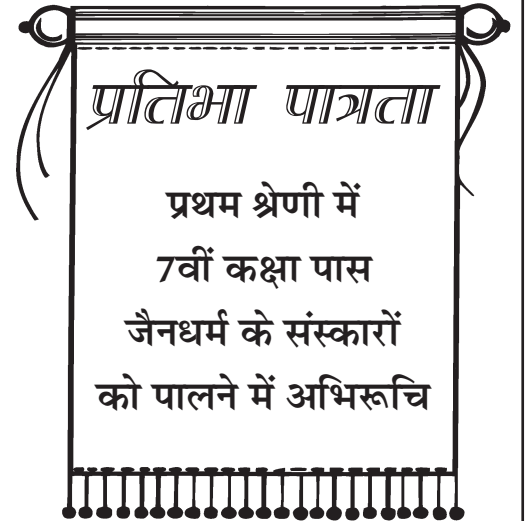 प्रतिभा पात्रता
प्रथम श्रेणी में
7वीं कक्षा पास
जैनधर्म के संस्कारों
को पालने में अभिरूचि